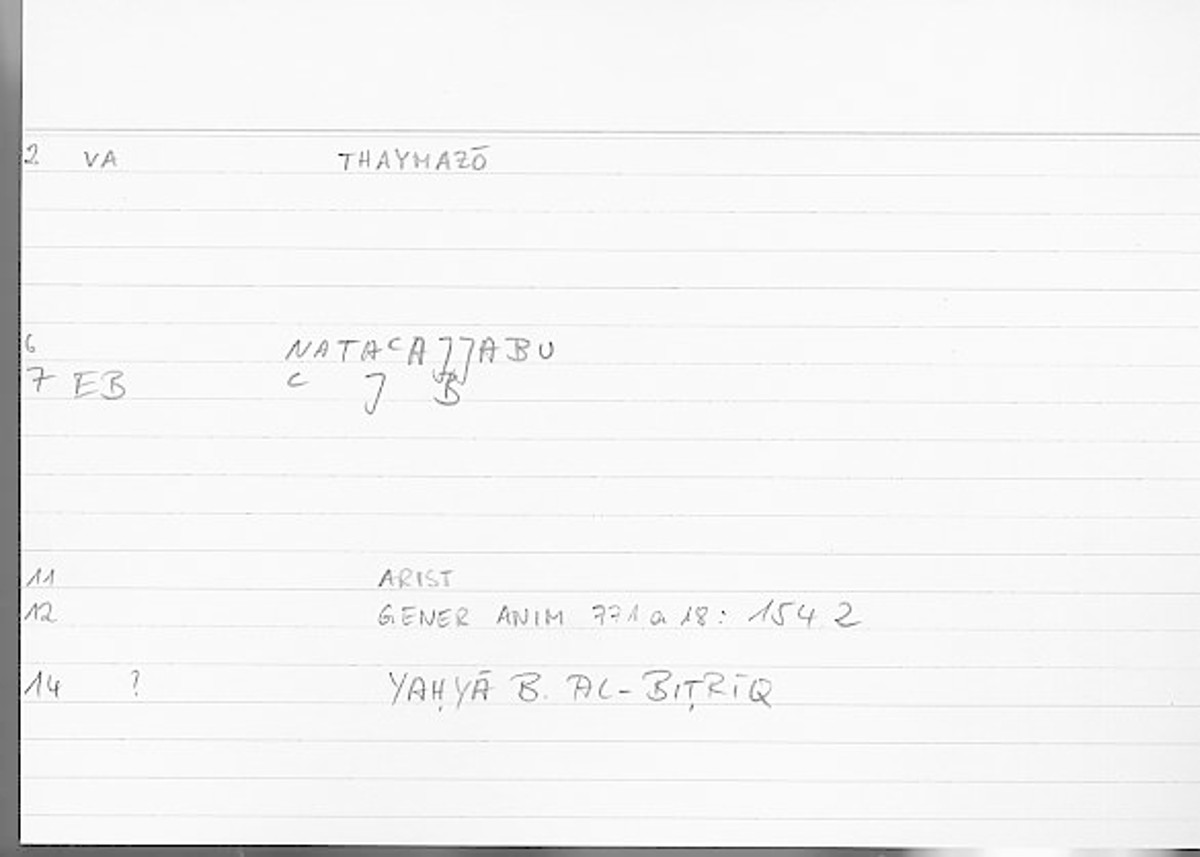 2 VA THAYMAZŌ
6 NATAᶜAJJABU
7 EB ᶜ J B
11 ARIST
12 GENER ANIM 771 a 18: 154 2
14 ? YAḤYĀ B. AL-BIṬRĪQ